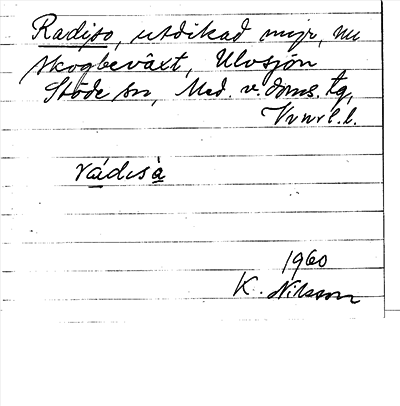 Radiso, utdikad myr, nu
skogbeväxt, Ulvsjön
Stöde sn, Med. v. doms. tg,
Vvnrl.l.
rádisà
1960
K. Nilsson